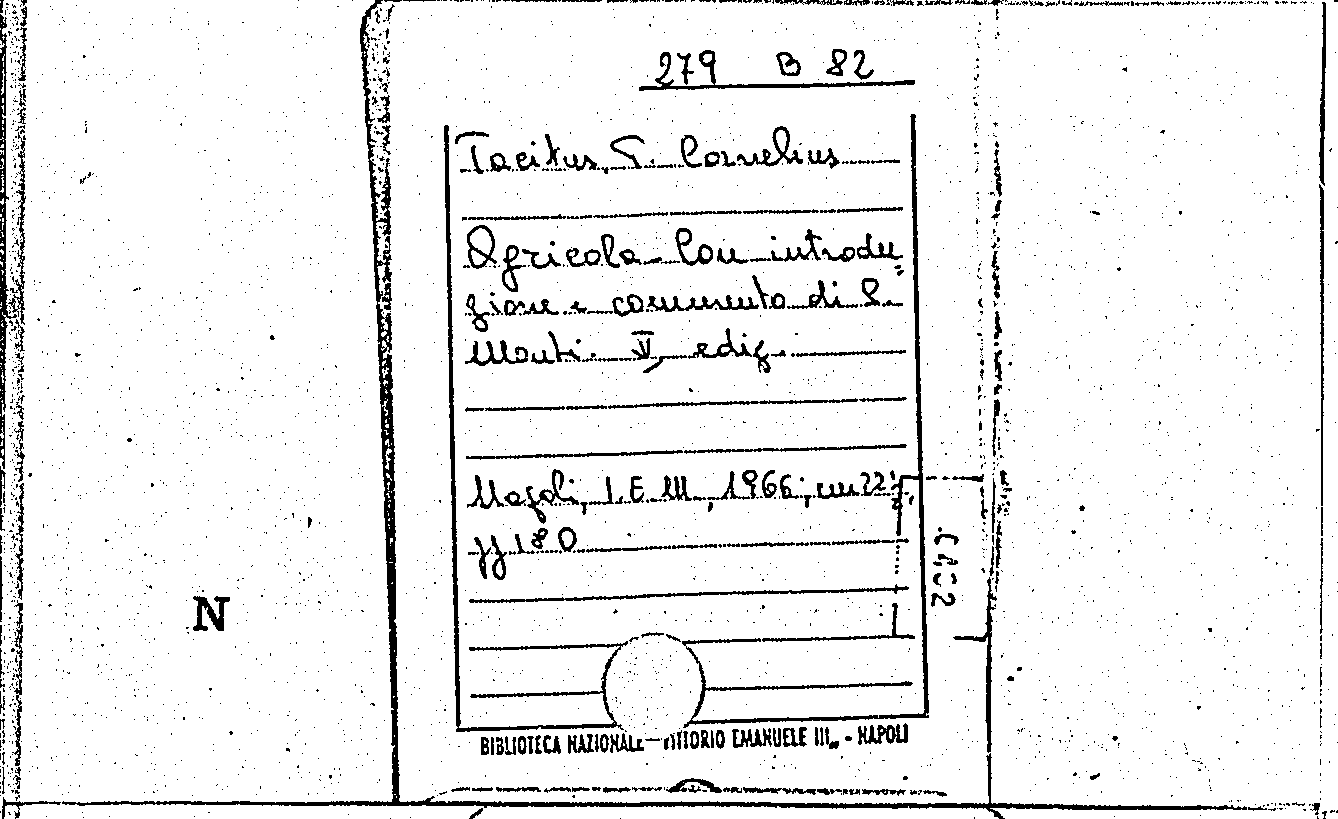 279 B 82
Tacitus, P. Cornelius
Agricola - Con introdu=
zione e commento di S.
Monti. V, ediz.
Napoli, I.E.M., 1966; cm 22;
pp 180
N
BIBLIOTECA NAZIONALE - VITTORIO EMANUELE III„ - NAPOLI